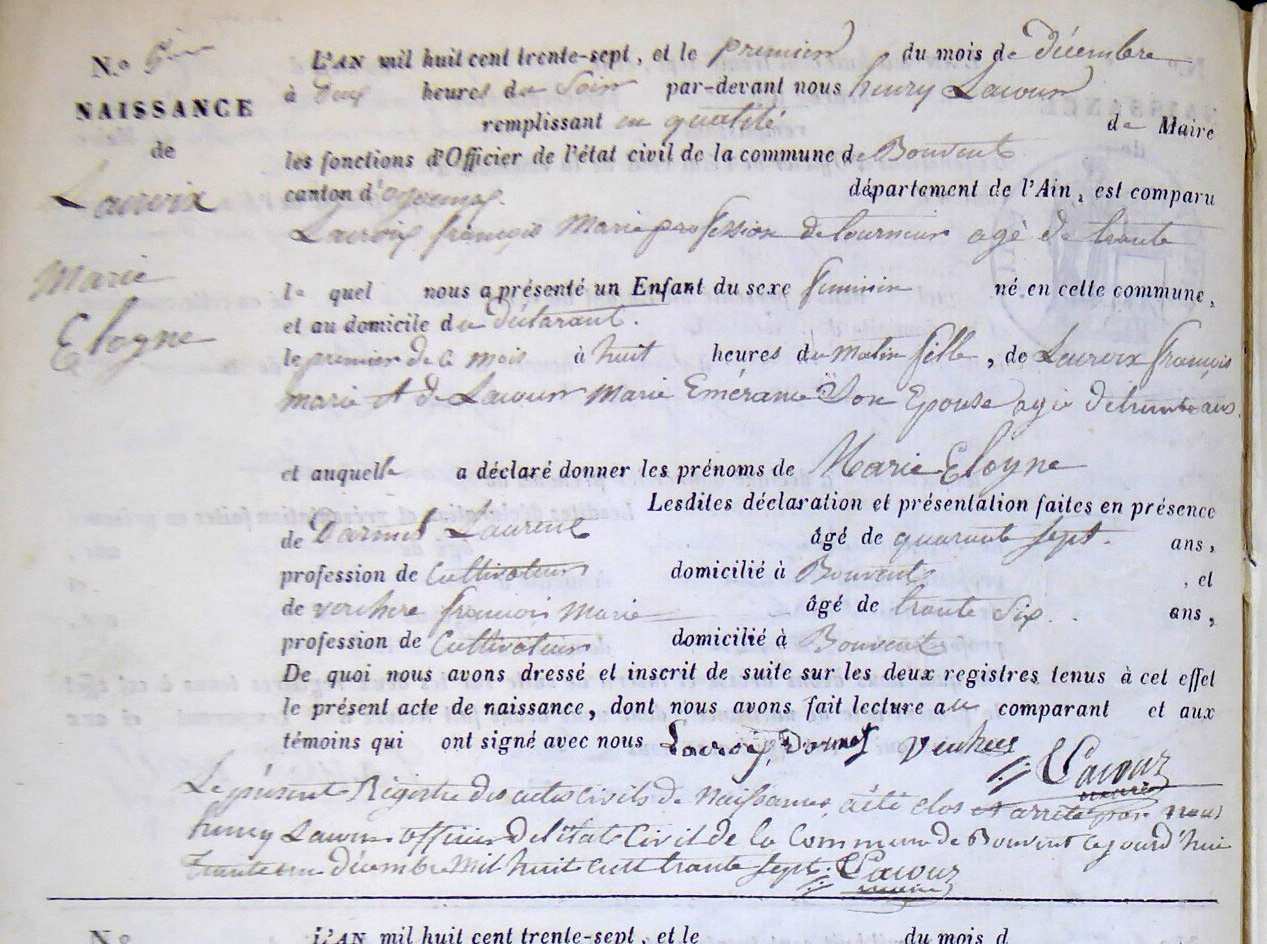 N.o 5
NAISSANCE
de
Lacroix
Marie
Eloyne
L'AN mil huit cent trente-sept, et le premier du mois de décembre
à heures du Soir par-devant nous henry Lacour
remplissant en qualité de Maire
les fonctions d'Officier de l'état civil de la commune de Bouvent
canton d'oyonnax. département de l'Ain, est comparu
Lacroix françois Marie profession de tourneur agé de trante
le quel nous a présenté un Enfant du sexe feminin né en celle commune,
et au domicile du déclarant.
le premier de ce mois à huit heures du Matin fille, de Lacroix françois
marie et de Lacour Marie Emérance Son Epouse agée de trante ans.
et auquelle a déclaré donner les prénoms de Marie Eloyne
Lesdites déclaration et présentation faites en présence
de Laurent âgé de quarante sept. ans,
profession de Cultivateur domicilié à Bouvent , et
de verchere françois Marie âgé de trante Six. ans,
profession de Cultivateur domicilié à Bouvent
De quoi nous avons dressé et inscrit de suite sur les deux registres tenus à cet effet
le présent acte de naissance, dont nous avons fait lecture au comparant et aux
témoins qui ont signé avec nous Lacroix, Lacour
Le présent Régistre des actes Civils de Naissances, a été clos et arrêté par nous
henry Lacour officier de l'état Civil de la Commune de Bouvent ce jourd'hui
trante un décembre Mil huit cent trante sept. Lacour
maire
N.o L'AN mil huit cent trente-sept, et le du mois d